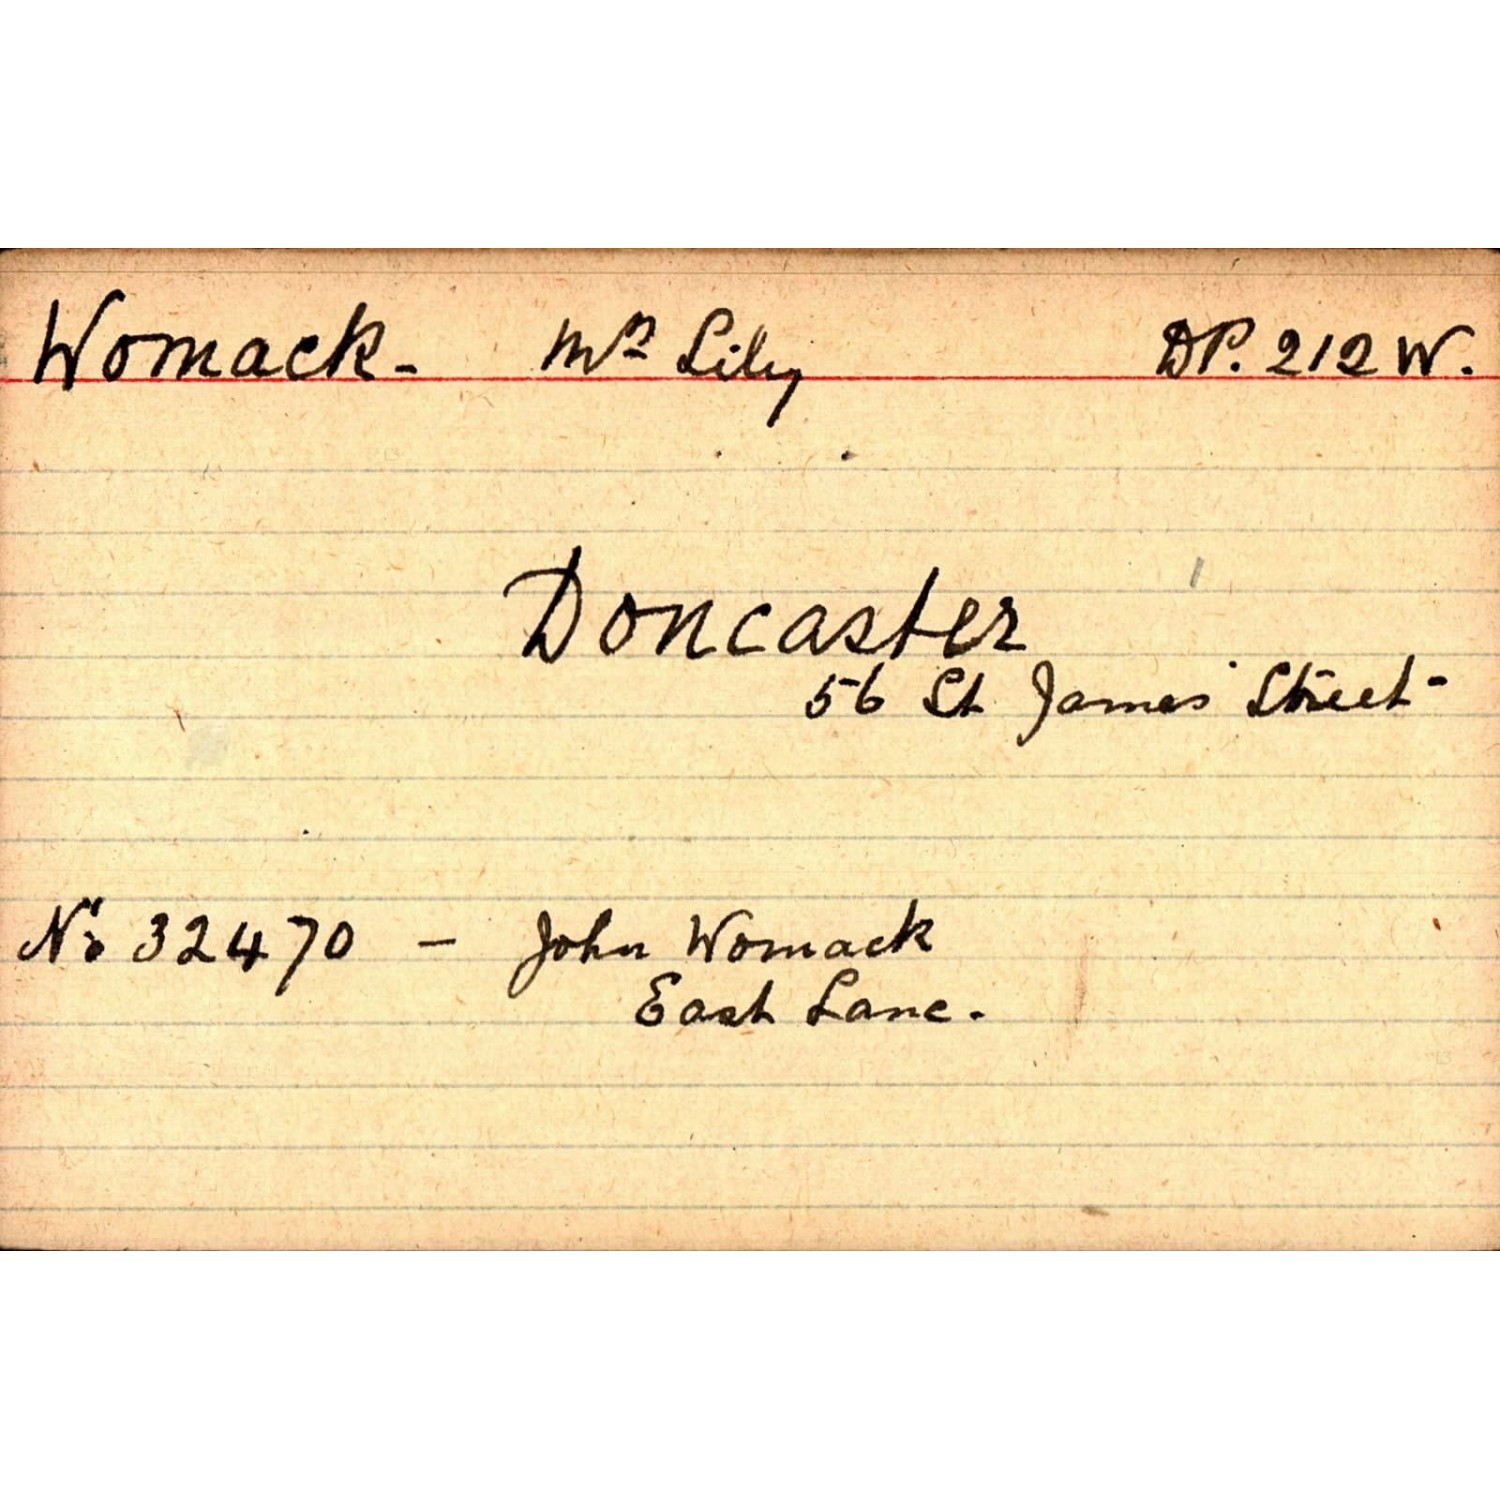 Womack - Mrs Lily DP. 212 W.
Doncaster
56 St James' Street -
No 32470 - John Womack
East Lane.